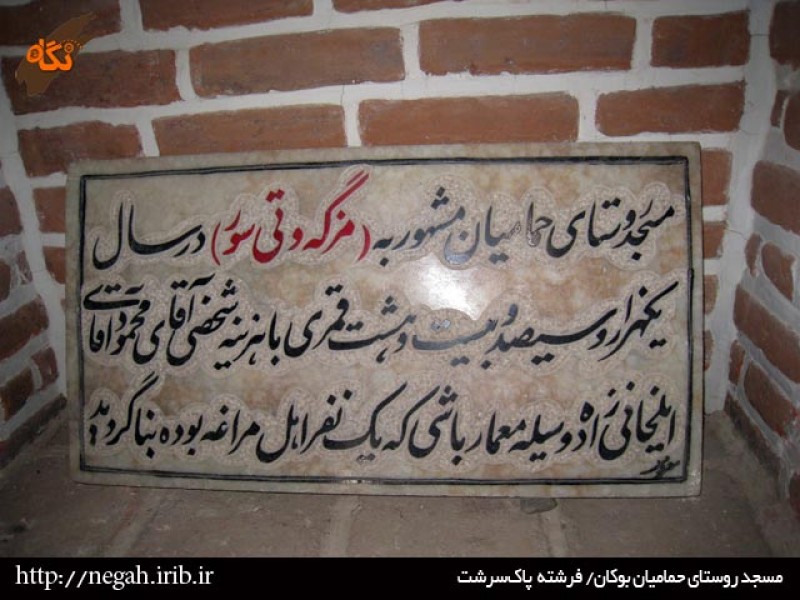 نگاه
مسجد روستای حمامیان مشهور به (مزگه وتی سور) در سال
یکهزار و سیصد و بیست و هشت قمری با هزینه شخصی آقای محمود آقای
ایلخانی زاده وسیله معمار باشی که یک نفر اهل مراغه بوده بنا گردید
http://negah.irib.ir
مسجد روستای حمامیان بوکان/ فرشته پاک‌سرشت